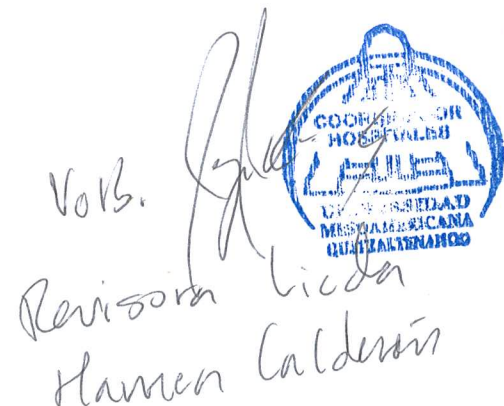 COORDINADOR
HOSPITALES
UNIVERSIDAD
MESOAMERICANA
QUETZALTENANGO
VoB.
Revisora Licda
Calderón